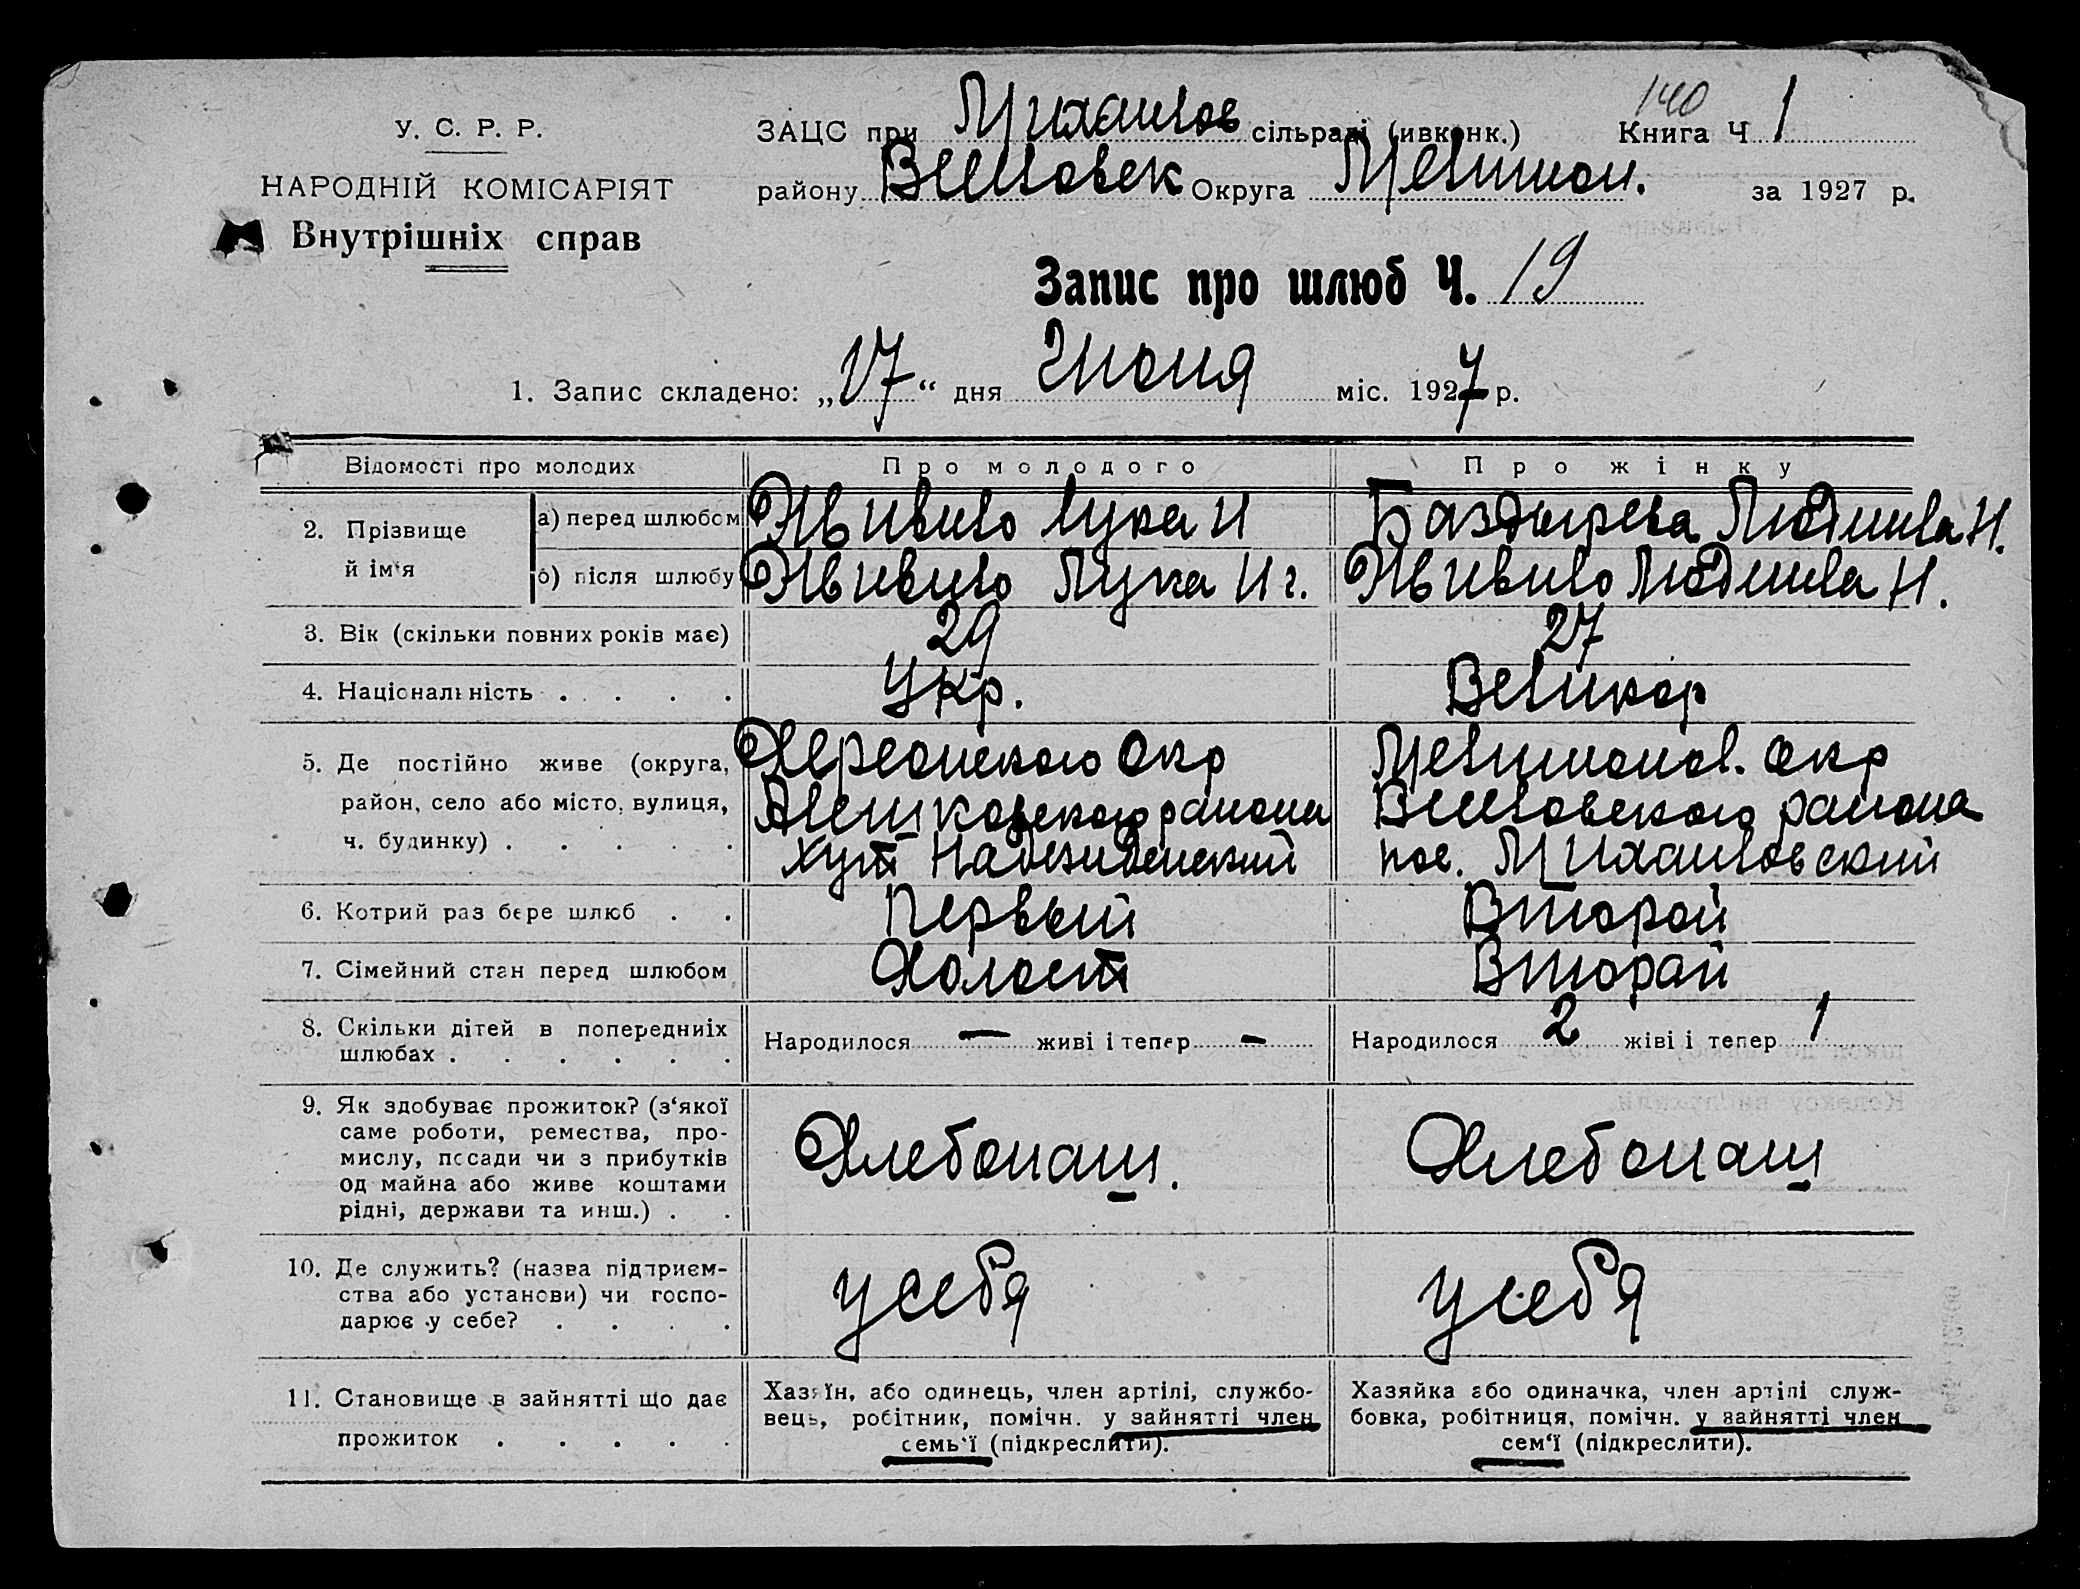 140
У. С. Р. Р.
НАРОДНІЙ КОМІСАРІЯТ
Внутрішніх справ
ЗАЦС при Михайлов сільраді (ивконк.) Книга Ч 1
району Округа Мелитоп. за 1927 р.
Запис про шлюб Ч. 19
1. Запис складено: „17“ дня Июня міс. 1927 р.
Відомості про молодих Про молодого Про жінку
2. Прізвище й ім‘я
а) перед шлюбом Лука И Баздырева Людмила Н.
б) після шлюбу Лука Иг. Людмила Н.
3. Вік (скільки повних років має) 29 27
4. Національність . . . . Укр. Великор
5. Де постійно живе (округа, Херсонского Окр Мелитопол. Окр
район, село або місто, вулиця, Алешковского района района
ч. будинку) . . . . . хут пос. Михайловский
6. Котрий раз бере шлюб . . Первый Второй
7. Сімейний стан перед шлюбом Холост Второй
8. Скільки дітей в попередниіх Народилося — живі і тепер — Народилося 2 жіві і тепер 1
шлюбах . . . . . .
9. Як здобуває прожиток? (з‘якої
саме роботи, ремества, про-
мислу, посади чи з прибутків Хлебопаш. Хлебопаш
од майна або живе коштами
рідні, держави та инш.) . .
10. Де служить? (назва підприєм-
ства або установи) чи госпо- у себя у себя
дарює у себе? . . . .
11. Становище в зайнятті що дає
прожиток . . . . .
Хазяїн, або одинець, член артілі, службо-
вець, робітник, помічн. у зайнятті член
семь‘ї (підкреслити).
Хазяйка або одиначка, член артілі служ-
бовка, робітниця, помічн. у зайнятті член
сем‘ї (підкреслити).